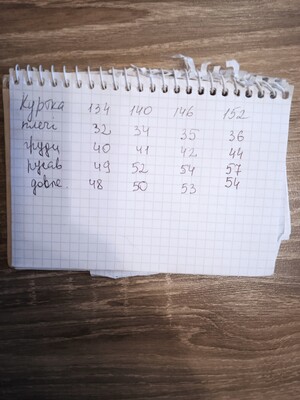 Куртка 134 140 146 152
плечі 32 34 35 36
груди 40 41 42 44
рукав 49 52 54 57
довж. 48 50 53 54